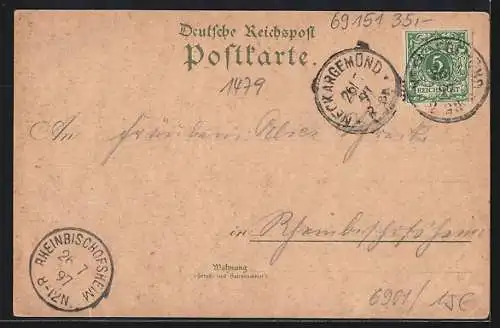 69151 35,-
Deutsche Reichspost
Postkarte.
1479
NECKARGEMÜND
26/7
97
5
REICHSPOST
An Fräulein Alice
in Rheinbischofsheim
RHEINBISCHOFSHEIM
26 7
97
Wohnung
(Straße und Hausnummer)
6981/15€